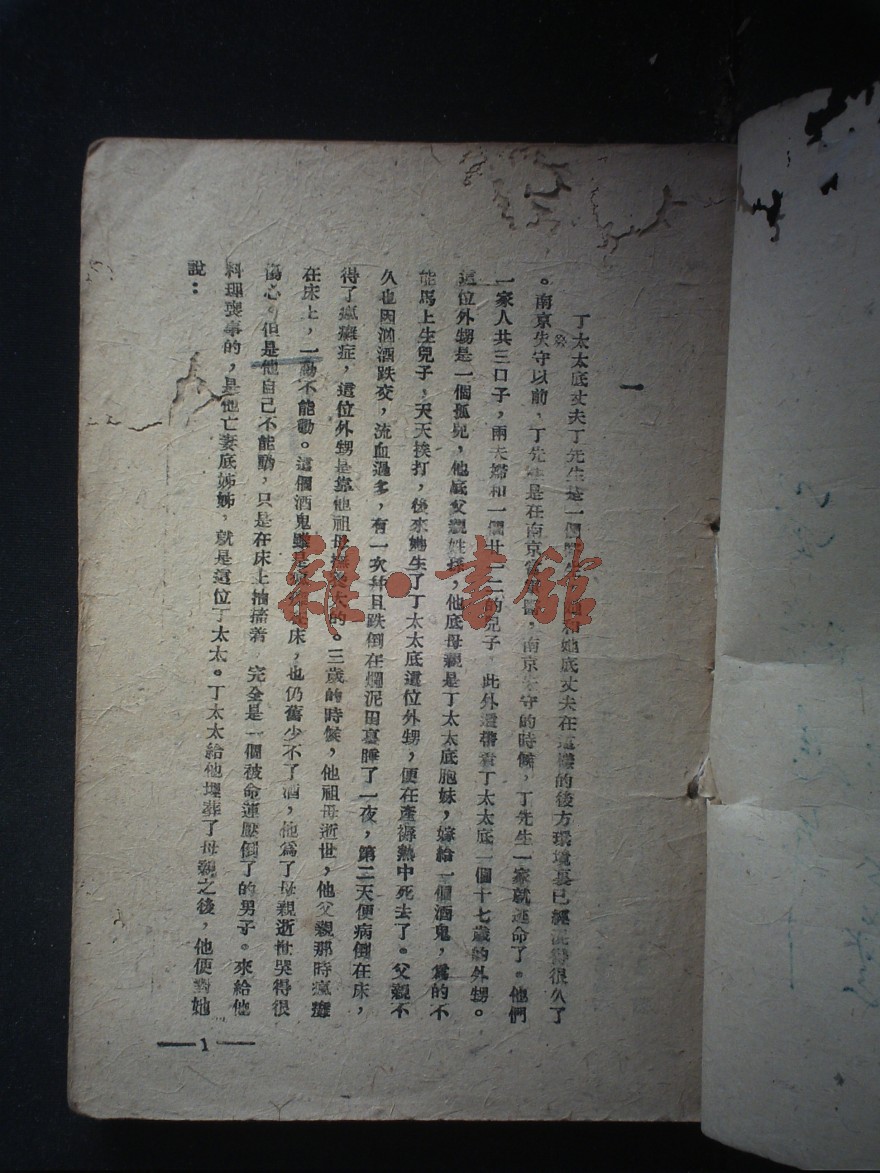 一
丁太太底丈夫丁先生是一個 和她底丈夫在這樣的後方環境裏已經 得很久了
。南京失守以前，丁先生是在南京 ，南京失守的時候，丁先生一家就逃命了。他們
一家人共三口子，兩夫婦和一個廿一二的兒子，此外還帶着丁太太底一個十七歲的外甥。
這位外甥是一個孤兒，他底父親姓 ，他底母親是丁太太底胞妹，嫁給一個酒鬼，爲的不
能馬上生兒子，天天挨打，後來她生了丁太太底這位外甥，便在產褥熱中死去了。父親不
久也因酒跌交，流血過多，有一次并且跌倒在爛泥田裏睡了一夜，第二天便病倒在床，
得了瘋癱症，這位外甥是靠他祖母撫養大的。三歲的時候，他祖母逝世，他父親那時瘋癱
在床上，一動不能動。這個酒鬼雖是 床，也仍舊少不了酒，他爲了母親逝世哭得很
傷心。但是他自己不能動，只是在床上抽搐着 完全是一個被命運壓倒了的男子。來給他
料理喪事的，是他亡妻底姊姊，就是這位丁太太。丁太太給他埋葬了母親之後，他便對她
說：
— 1 —
雜·書館